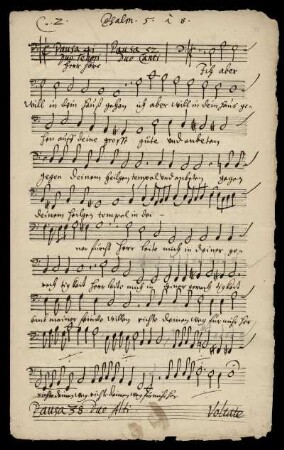 C. 2. Psalm. 5. à 8.
Pausa 21 Pausa 52
Duo Tenori Duo Canti
Herr höre Ich aber
will in dein Hauß gehen ich aber will in dein Hauß ge-
hen auff deine große güte und anbeten
gegen deinem heiligen tempel und anbeten gegen
deinem heilgen tempel in dei-
ner furcht Herr leite mich in deiner ge-
rech tig keit Herr leite mich in deiner gerech tig keit
umb meiner feinde willen richte deinen weg für mir her
richte deinen weg richte deinen weg für mir her
Pausa 38 Duo Alti Voltate